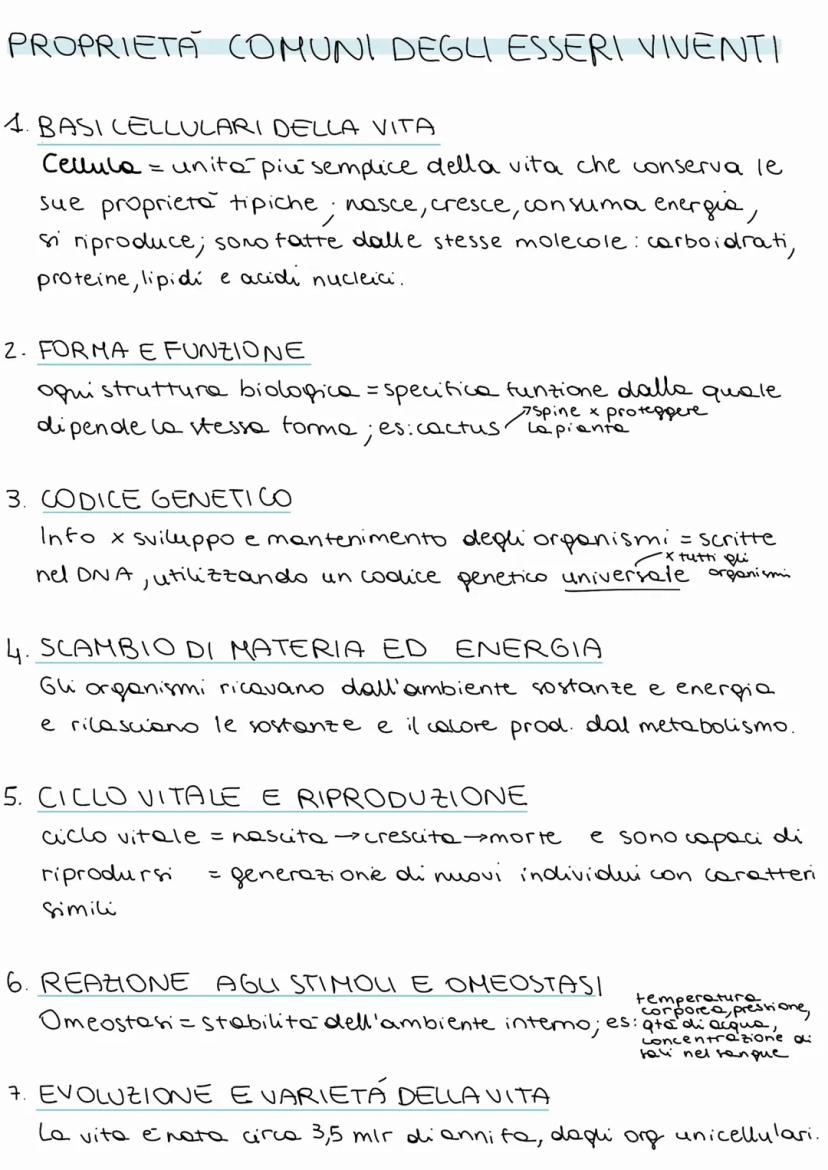 PROPRIETÀ COMUNI DEGLI ESSERI VIVENTI
1. BASI CELLULARI DELLA VITA
Cellula = unità più semplice della vita che conserva le
sue proprietà tipiche: nasce, cresce, consuma energia,
si riproduce; sono fatte dalle stesse molecole: carboidrati,
proteine, lipidi e acidi nucleici.
2. FORMA E FUNZIONE
ogni struttura biologica = specifica funzione dalla quale
dipende la stessa forma; es: cactus ↗ spine x proteggere
la pianta
3. CODICE GENETICO
Info x sviluppo e mantenimento degli organismi = scritte
nel DNA, utilizzando un codice genetico universale x tutti gli
organismi
4. SCAMBIO DI MATERIA ED ENERGIA
Gli organismi ricavano dall'ambiente sostanze e energia
e rilasciano le sostanze e il calore prod. dal metabolismo.
5. CICLO VITALE E RIPRODUZIONE
ciclo vitale = nascita → crescita → morte e sono capaci di
riprodursi = generazione di nuovi individui con caratteri
simili
6. REAZIONE AGLI STIMOLI E OMEOSTASI
Omeostasi = stabilità dell'ambiente interno; es: temperatura
corporea, pressione,
qtà di acqua,
concentrazione di
sali nel sangue
7. EVOLUZIONE E VARIETÀ DELLA VITA
La vita è nata circa 3,5 mlr di anni fa, dagli org unicellulari.